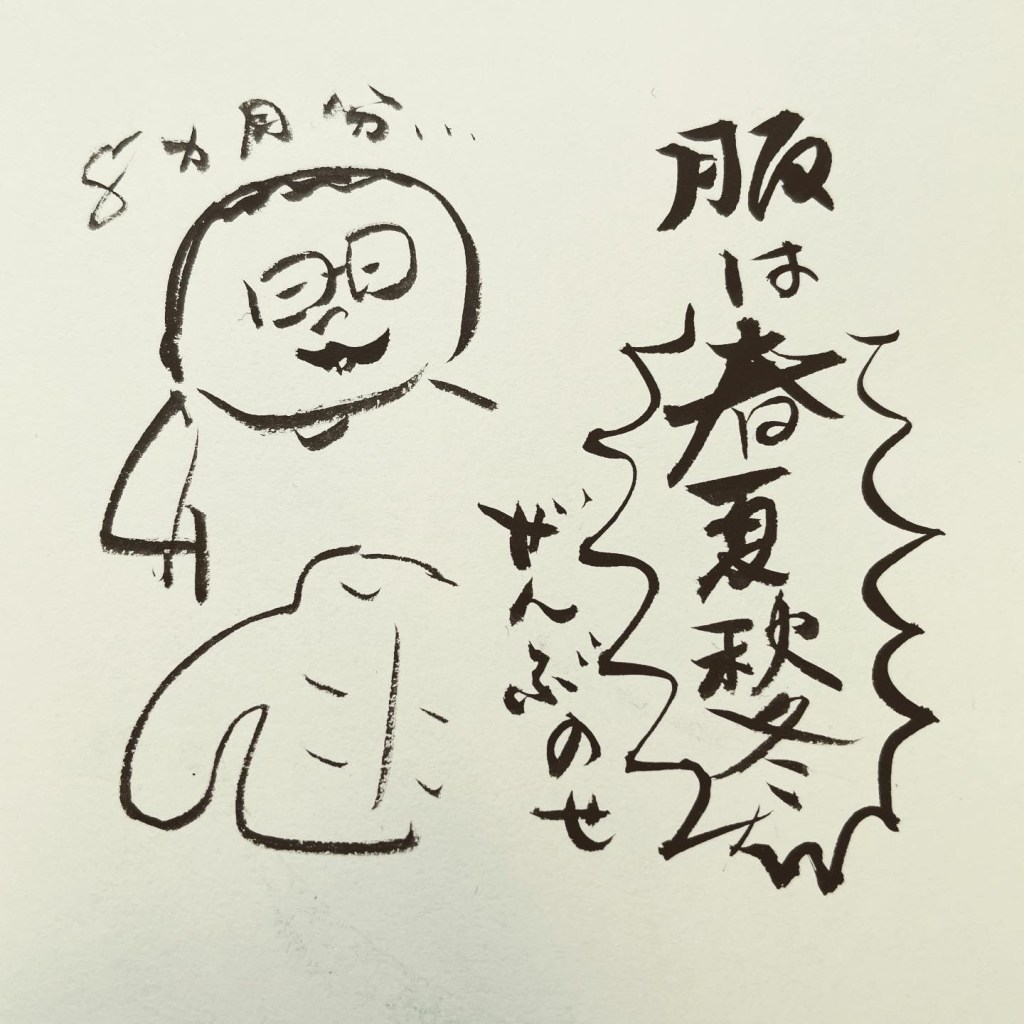 服は春夏秋冬
ぜんぶのせ
8ヵ月分...